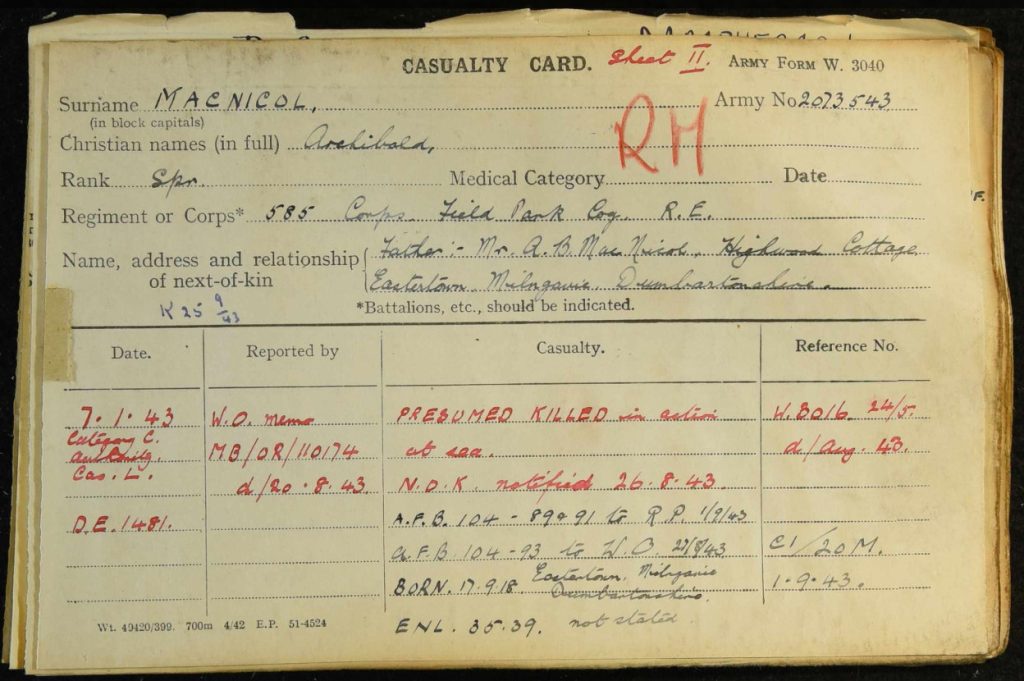 CASUALTY CARD. Sheet II. ARMY FORM W. 3040
Surname MACNICOL, Army No 2073543
(in block capitals)
Christian names (in full) Archibald,
RM
Rank Spr. Medical Category Date
Regiment or Corps* 585 Corps Field Park Coy. R.E.
Name, address and relationship of next-of-kin
Father:- Mr. A.B. MacNicol, Highwood Cottage,
Eastertown, Milngavie, Dumbartonshire.
*Battalions, etc., should be indicated.
K 25 9/43
Date. Reported by Casualty. Reference No.
7.1.43 W.O. memo PRESUMED KILLED in action W.8016 24/5.
Category C. MB/OR/110174 at sea. d/Aug. 43.
Cas. L. d/20.8.43. N.O.K. notified 26.8.43.
D.E.1481. A.F.B. 104-89 & 91 to R.P. 1/9/43
A.F.B. 104-93 to W.O. C1/20M.
BORN. 17.9.18. Eastertown, Milngavie 1.9.43.
Dumbartonshire.
ENL. 35.39. not stated
Wt. 49420/399. 700m 4/42 E.P. 51-4524